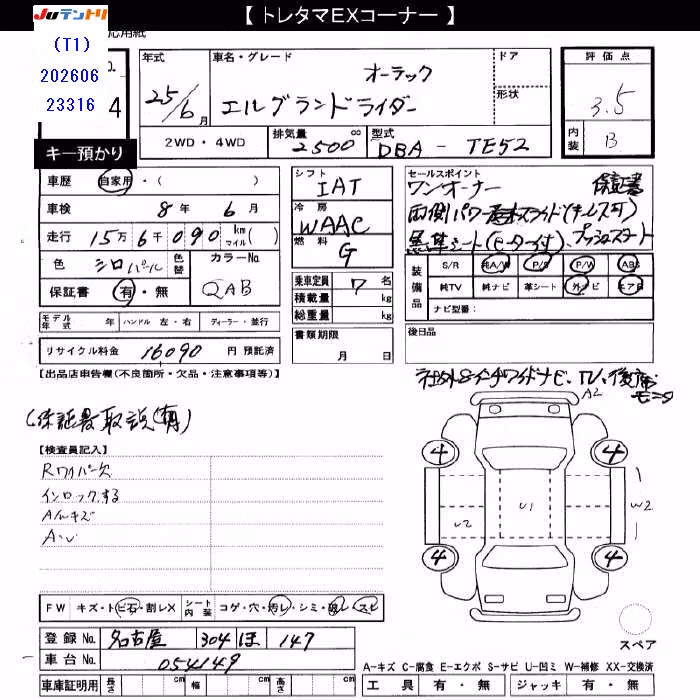 【 トレタマEXコーナー 】
Juテントリ
(T1)
202606
23316
応用紙
4
キー預かり
年式 25/6月
車名・グレード オーラック
エルグランドライダー
ドア
形状
評価点 3.5
内装 B
2WD・4WD 排気量 2500 cc 型式 DBA - TE52
車歴 自家用・( )
車検 8年 6月
走行 15万6千090 km マイル( )
色 シロパール 色替 カラーNo. QAB
保証書 有・無
シフト IAT
冷房 WAAC
燃料 G
乗車定員 7 名
積載量 kg
総重量 kg
セールスポイント
ワンオーナー 保証書
両側パワースライド(キーレス可)
黒革シート(ヒーター付)、プッシュスタート
装備品 S/R 純A/W P/S P/W ABS
純TV 純ナビ 革シート 外ナビ エアB
ナビ型番:
モデル年式 年 ハンドル 左・右 ディーラー・並行
リサイクル料金 16090 円 預託済
書類期限 月 日
後日品
【出品店申告欄(不良箇所・欠品・注意事項等)】
社外8インチワイドナビ、TV、後席モニタ
(保証書取説(有)
【検査員記入】
Rワイパー欠
インロックする
A/Wキズ
A・U
A2
4 4
U2 U1 W2
4 4
スペア
FW キズ・トビ石・割レX シート内装 コゲ・穴・汚レ・シミ・破レ・スレ
登録No. 名古屋 304 ほ 147
車台No. 054149
車庫証明用 長さ cm 幅 cm 高さ cm
A-キズ C-腐食 E-エクボ S-サビ U-凹ミ W-補修 XX-交換済
工具 有・無 ジャッキ 有・無